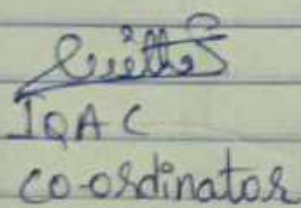 IQAC
co-ordinator